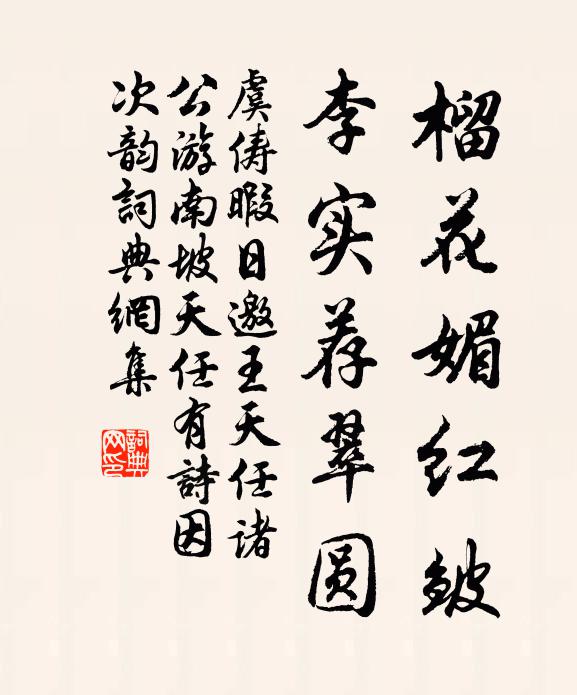 榴花媚红皱
李实荐翠圆
虞俦暇日邀王天任诸
公游南坡天任有詩因
次韵詞典網集
詞典网印